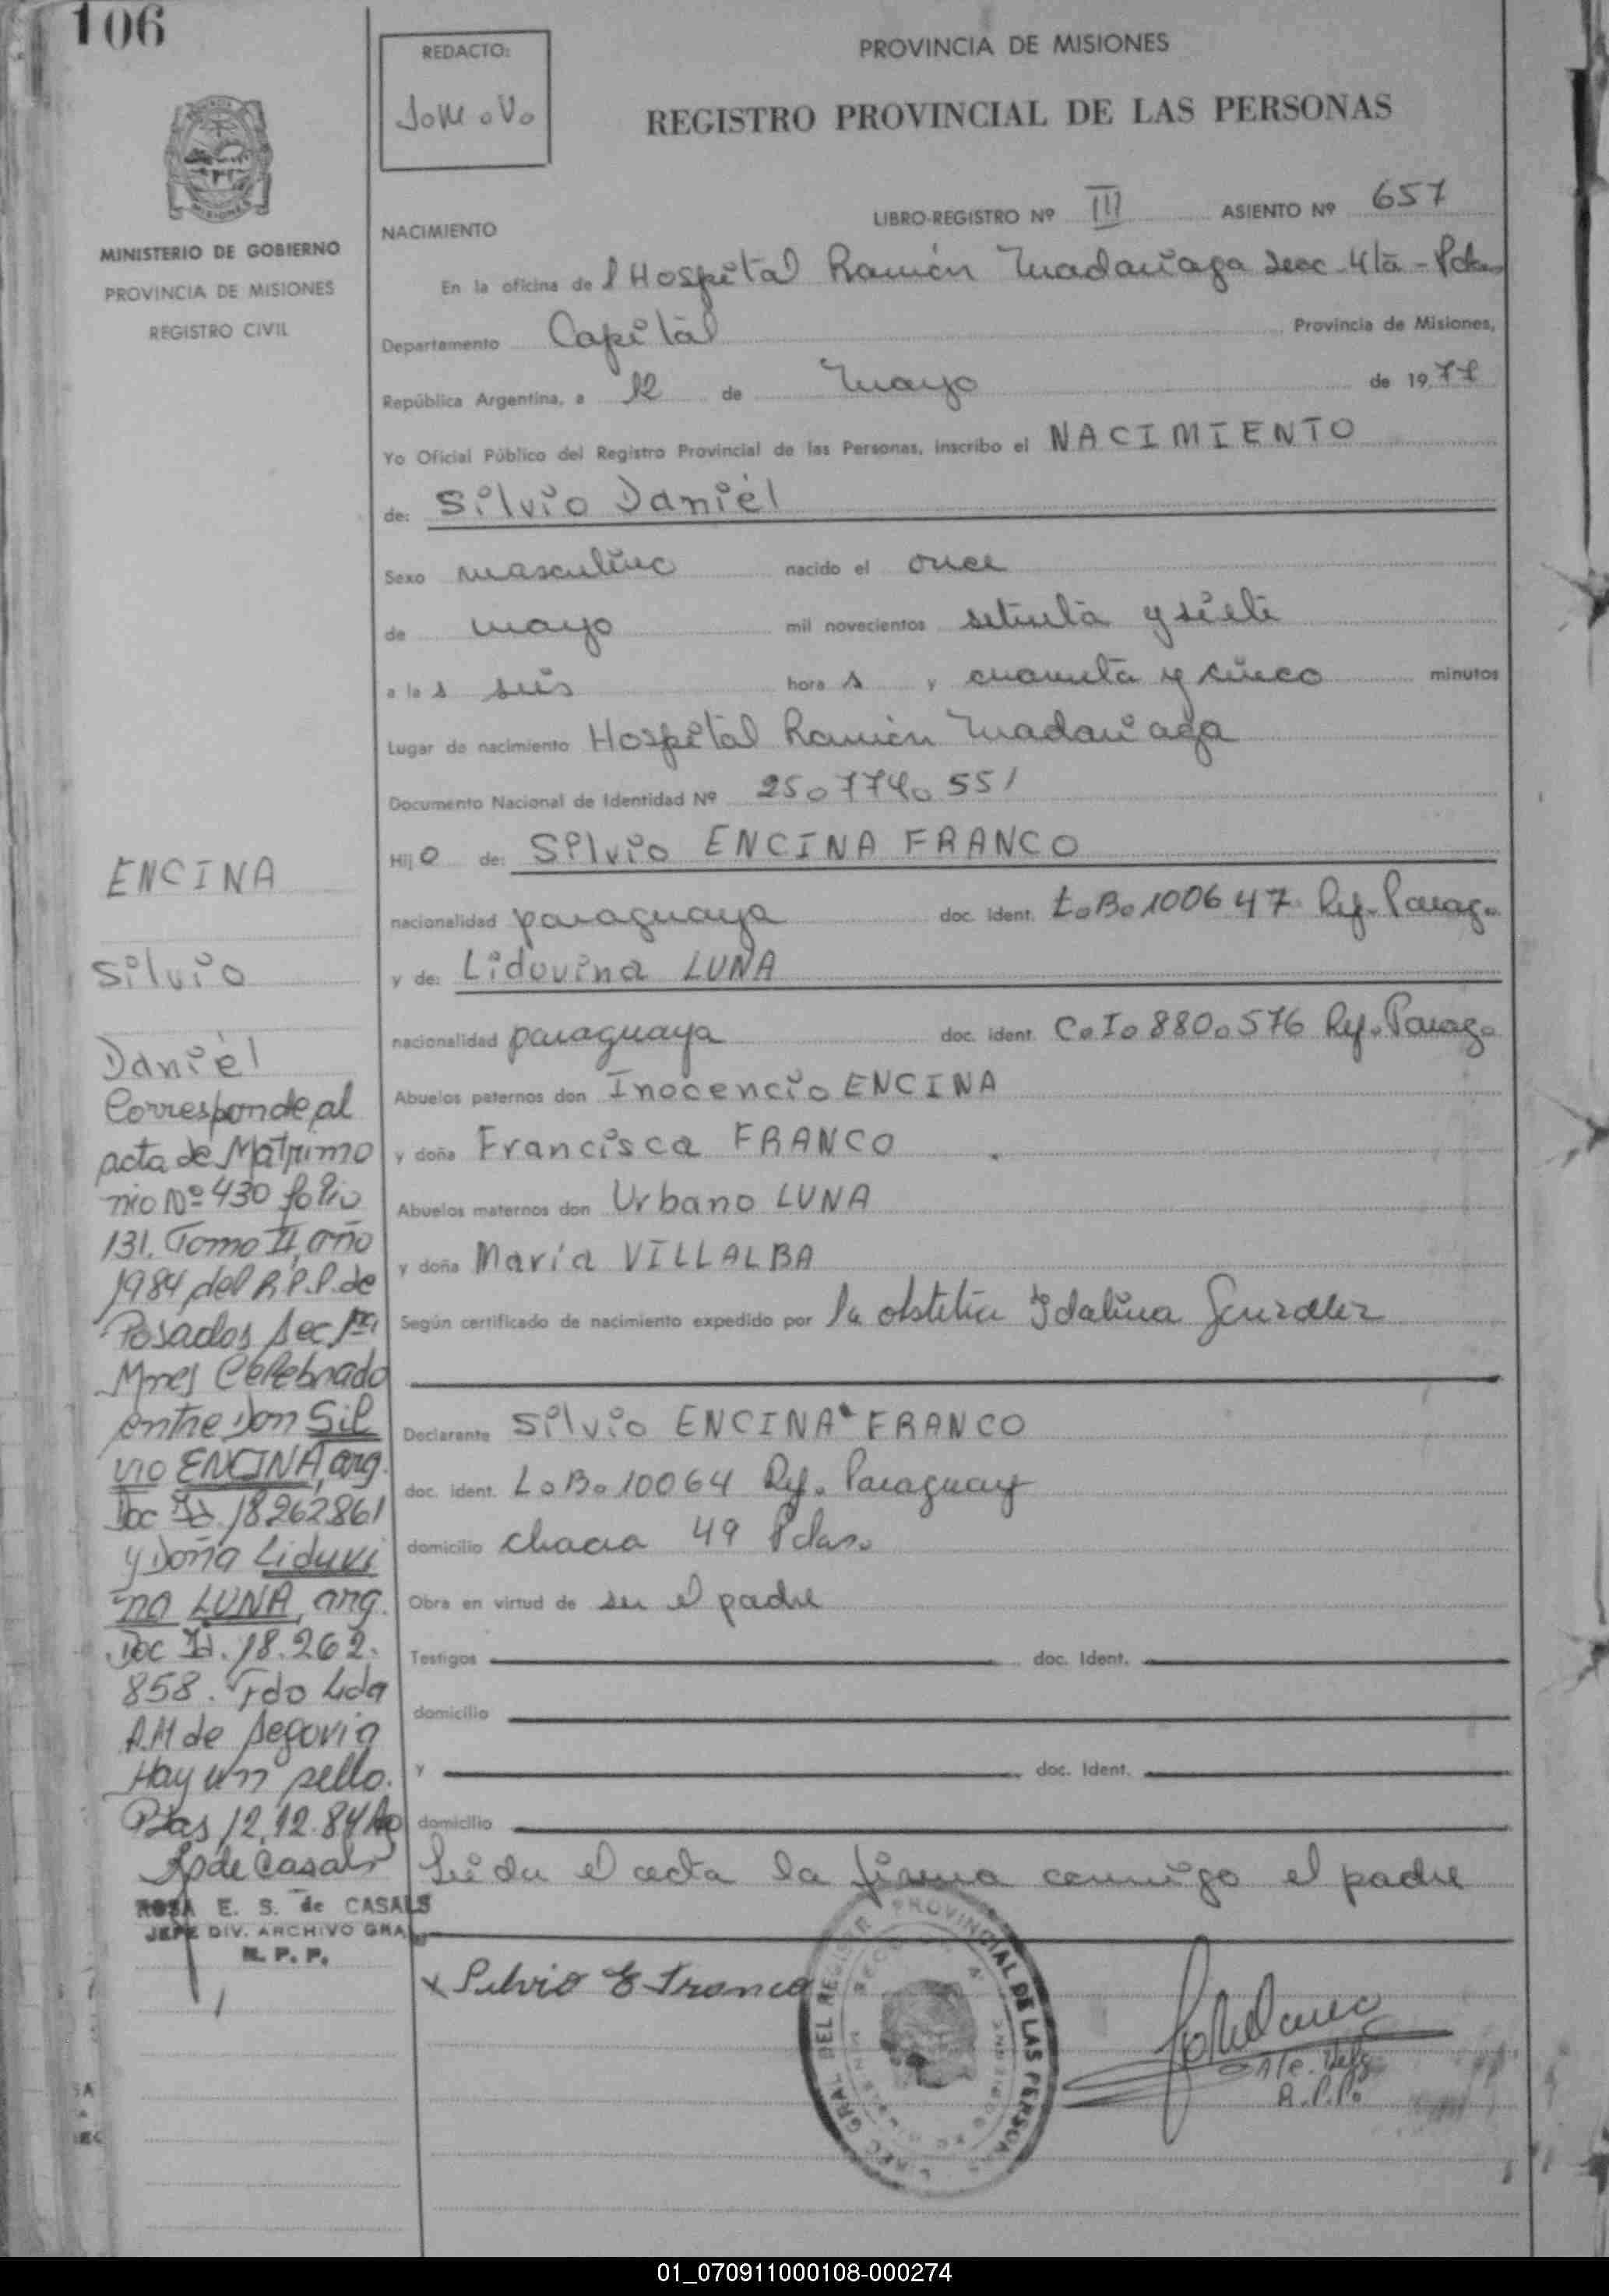 106
REDACTO:
PROVINCIA DE MISIONES
REGISTRO PROVINCIAL DE LAS PERSONAS
MINISTERIO DE GOBIERNO
PROVINCIA DE MISIONES
REGISTRO CIVIL
LIBRO-REGISTRO Nº III ASIENTO Nº 657
NACIMIENTO
En la oficina de l Hospital Ramón Madariaga secc 4ta - Pdas
Departamento Capital Provincia de Misiones,
República Argentina, a 12 de Mayo de 1977
Yo Oficial Público del Registro Provincial de las Personas, inscribo el NACIMIENTO
de: Silvio Daniel
Sexo masculino nacido el once
de mayo mil novecientos setenta y siete
a la s seis hora s y cuarenta y cinco minutos
Lugar de nacimiento Hospital Ramón Madariaga
Documento Nacional de Identidad Nº 25.774.551
Hij o de: Silvio ENCINA FRANCO
nacionalidad paraguaya doc. ident. L.B. 100647 Rep. Parag.
y de: Lidovina LUNA
nacionalidad paraguaya doc. ident. C.I. 880.576 Rep. Parag.
Abuelos paternos don Inocencio ENCINA
y doña Francisca FRANCO
Abuelos maternos don Urbano LUNA
y doña María VILLALBA
Según certificado de nacimiento expedido por la obstetra Idalina González
Declarante Silvio ENCINA FRANCO
doc. ident. L.B. 10064 Rep. Paraguay
domicilio chacra 49 Pdas.
Obra en virtud de ser el padre
Testigos doc. Ident.
domicilio
y doc. Ident.
domicilio
Leida el acta la firma conmigo el padre
x Silvio E Franco
R.P.P.
DIREC GRAL DEL REGISTR PROVINCIAL DE LAS PERSONA
ENCINA
Silvio
Daniel
Corresponde al
acta de Matrimo
nio Nº 430 folio
131. Tomo II, año
1984 del R.P.P. de
Posadas Sec 1ra
Mnes Celebrado
entre Don Sil
vio ENCINA, arg.
Doc Id. 18262861
y Doña Liduvi
na LUNA, arg.
Doc Id. 18.262.
858. Fdo Lida
A.M de Segovia
Hay un sello.
Pdas 12.12.84
de Casals
ROSA E. S. de CASALS
JEFE DIV. ARCHIVO GRAL
R. P. P.
01_070911000108-000274